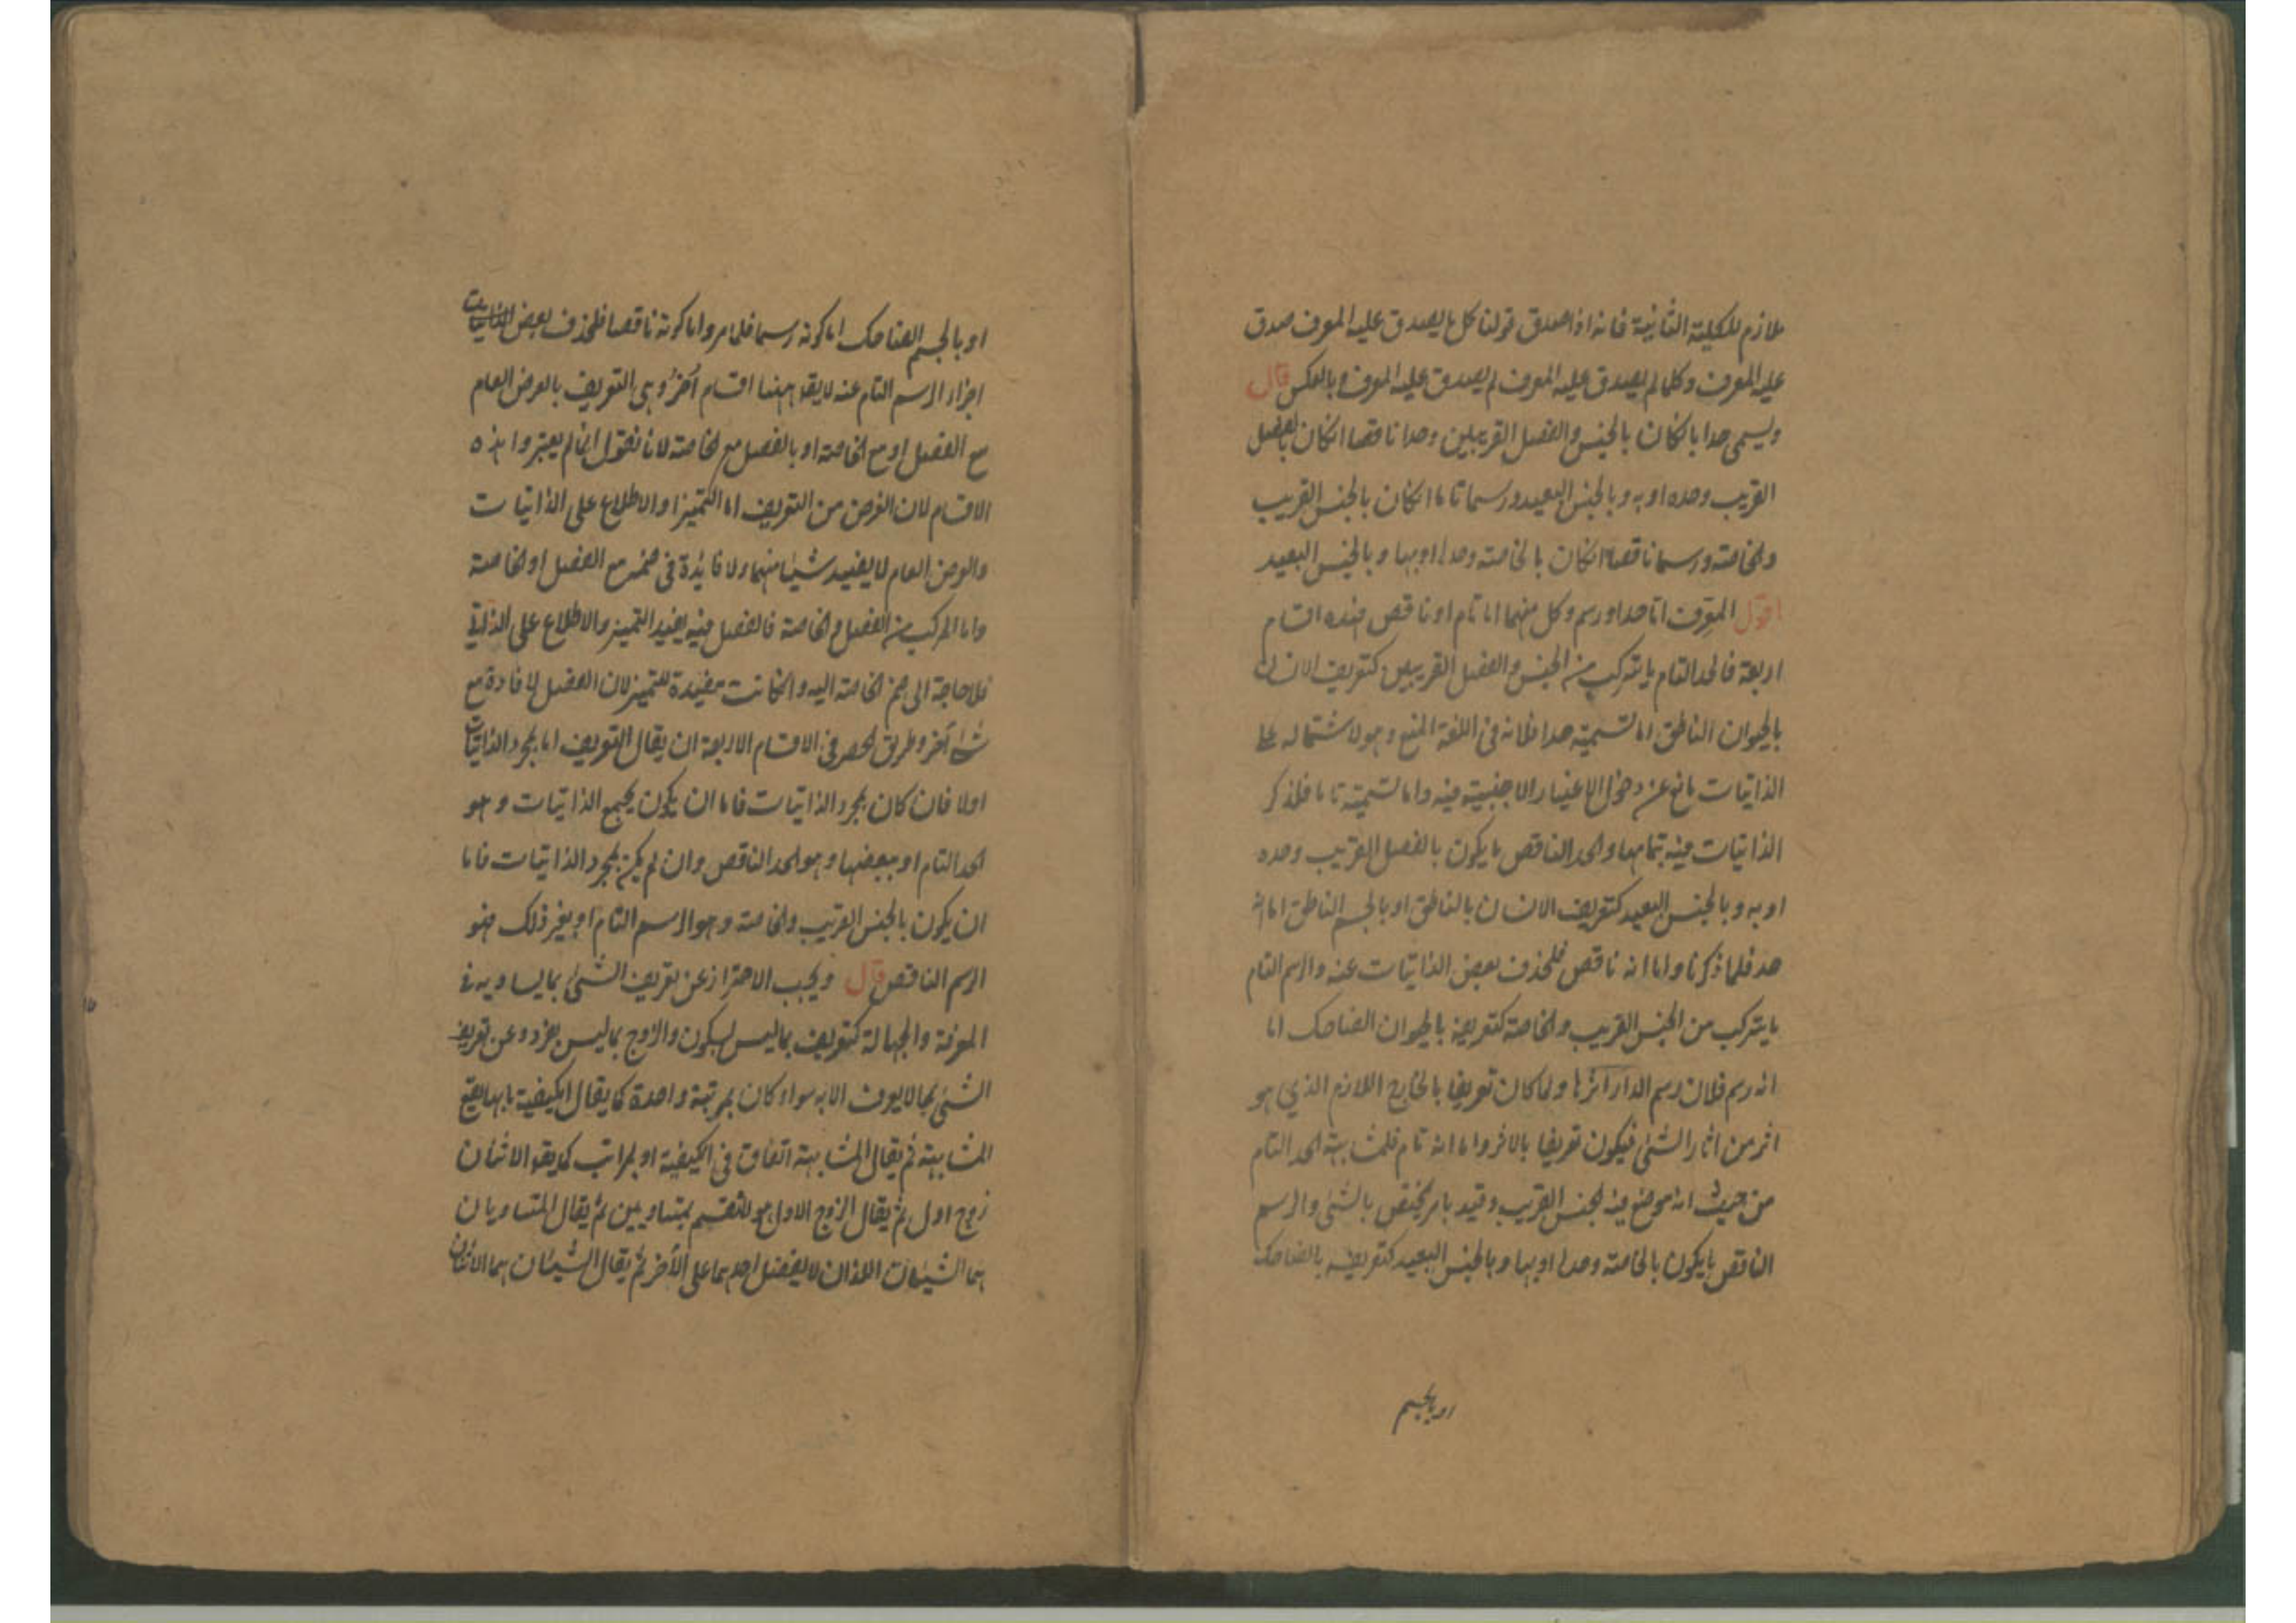 ملازم للكلية الثانية فانه اذا صدق قولنا كل ما يصدق عليه المعرف صدق
عليه المعرف وكلما لم يصدق عليه المعرف لم يصدق عليه المعرف وبالعكس قال
ويسمى حدا تاما انكان بالجنس والفصل القريبين وحدا ناقصا انكان بالفصل
القريب وحده او به وبالجنس البعيد ورسما تاما انكان بالجنس القريب
والخاصة ورسما ناقصا انكان بالخاصة وحدها او بها وبالجنس البعيد
اقول المعرف اما حد او رسم وكل منهما اما تام او ناقص فهذه اقسام
اربعة فالحد التام ما يتركب من الجنس والفصل القريبين كتعريف الانسان
بالحيوان الناطق اما تسميته حدا فلانه في اللغة المنع وهو لاشتماله على
الذاتيات مانع عن دخول الاغيار الاجنبية فيه واما تسميته تاما فلذكر
الذاتيات فيه بتمامها والحد الناقص ما يكون بالفصل القريب وحده
او به وبالجنس البعيد كتعريف الانسان بالناطق او بالجسم الناطق اما انه
حد فلما ذكرنا واما انه ناقص فلحذف بعض الذاتيات عنه والرسم التام
ما يتركب من الجنس القريب والخاصة كتعريفه بالحيوان الضاحك اما
انه رسم فلان رسم الدار اثرها ولما كان تعريفا بالخارج اللازم الذي هو
اثر من اثار الشئ فيكون تعريفا بالاثر واما انه تام فلمشابهته الحد التام
من حيث انه وضع فيه الجنس القريب وقيد بامر يختص بالشئ والرسم
الناقص ما يكون بالخاصة وحدها او بها وبالجنس البعيد كتعريفه بالضاحك
او بالجسم
او بالجسم الضاحك اما كونه رسما فلما مر واما كونه ناقصا فلحذف بعض
اجزاء الرسم التام عنه لا يقال ههنا اقسام آخر وهي التعريف بالعرض العام
مع الفصل او مع الخاصة او بالفصل مع الخاصة لانا نقول انما لم يعتبروا هذه
الاقسام لان الغرض من التعريف اما التميز او الاطلاع على الذاتيات
والعرض العام لا يفيد شيئا منهما ولا فائدة في ضمه مع الفصل او الخاصة
واما المركب من الفصل والخاصة فالفصل فيه يفيد التميز والاطلاع على الذاتي
فلا حاجة الى ضم الخاصة اليه وانكانت مفيدة للتميز لان الفصل افاده مع
شئ آخر وطريق الحصر في الاقسام الاربعة ان يقال التعريف اما بمجرد الذاتيات
اولا فان كان بمجرد الذاتيات فاما ان يكون بجميع الذاتيات وهو
الحد التام او ببعضها وهو الحد الناقص وان لم يكن بمجرد الذاتيات فاما
ان يكون بالجنس القريب والخاصة وهو الرسم التام او بغير ذلك فهو
الرسم الناقص قال ويجب الاحتراز عن تعريف الشئ بما يساويه في
المعرفة والجهالة كتعريف بما ليس بسكون والزوج بما ليس بفرد وعن تعريف
الشئ بما لا يعرف الا به سواء كان بمرتبة واحدة كما يقال الكيفية ما بها يقع
المشابهة ثم يقال المشابهة اتفاق في الكيفية او بمراتب كما يقال الاثنان
زوج اول ثم يقال الزوج الاول هو المنقسم بمتساويين ثم يقال المتساويان
هما الشيئان اللذان لا يفضل احدهما على الآخر ثم يقال الشيئان هما الاثنان